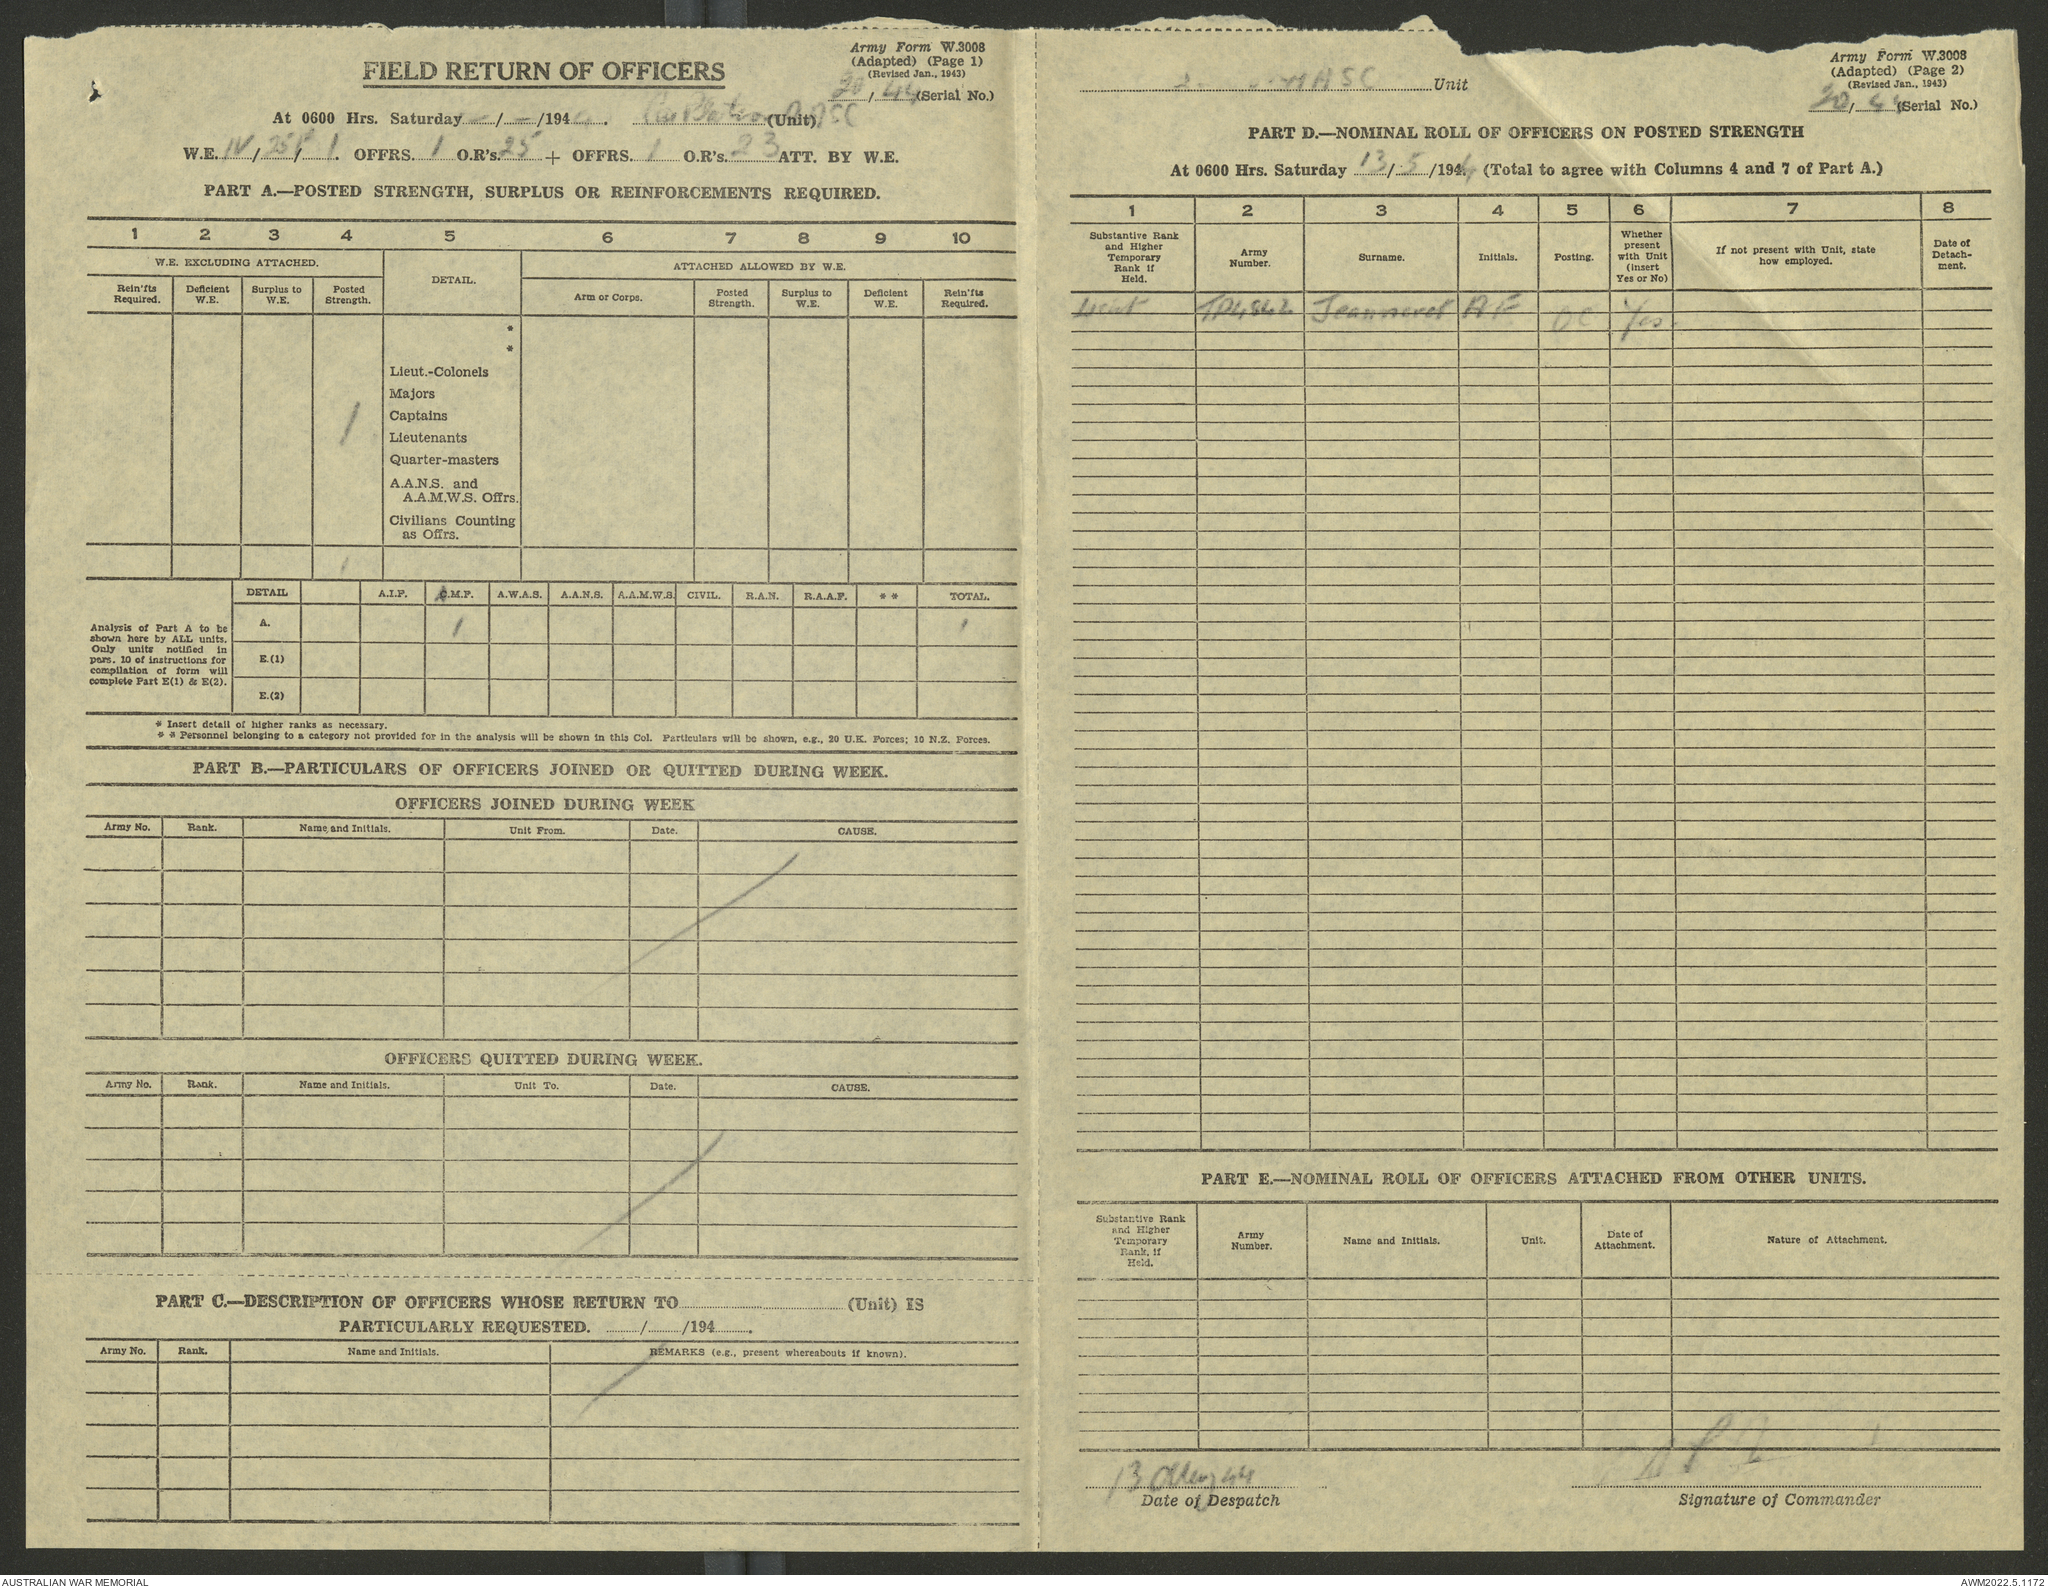 Army Form W.3008
(Adapted) (Page 1)
(Revised Jan., 1943)
FIELD RETURN OF OFFICERS
20 / 44 (Serial No.)
At 0600 Hrs. Saturday - / - /194 . AASC (Unit)
W.E. IV / 251 / 1. OFFRS. 1 O.R's. 25 + OFFRS. 1 O.R's. 23 ATT. BY W.E.
PART A.—POSTED STRENGTH, SURPLUS OR REINFORCEMENTS REQUIRED.
1 2 3 4 5 6 7 8 9 10
W.E. EXCLUDING ATTACHED. DETAIL. ATTACHED ALLOWED BY W.E.
Rein'fts Required. Deficient W.E. Surplus to W.E. Posted Strength. Arm or Corps. Posted Strength. Surplus to W.E. Deficient W.E. Rein'fts Required.
*
*
Lieut.-Colonels
Majors
Captains
1 Lieutenants
Quarter-masters
A.A.N.S. and
A.A.M.W.S. Offrs.
Civilians Counting
as Offrs.
1
DETAIL A.I.F. C.M.F. A.W.A.S. A.A.N.S. A.A.M.W.S. CIVIL. R.A.N. R.A.A.F. * * TOTAL.
A. 1 1
E.(1)
E.(2)
Analysis of Part A to be
shown here by ALL units.
Only units notified in
para. 10 of instructions for
compilation of form will
complete Part E(1) & E(2).
* Insert detail of higher ranks as necessary.
* * Personnel belonging to a category not provided for in the analysis will be shown in this Col. Particulars will be shown, e.g., 20 U.K. Forces; 10 N.Z. Forces.
PART B.—PARTICULARS OF OFFICERS JOINED OR QUITTED DURING WEEK.
OFFICERS JOINED DURING WEEK
Army No. Rank. Name and Initials. Unit From. Date. CAUSE.
OFFICERS QUITTED DURING WEEK.
Army No. Rank. Name and Initials. Unit To. Date. CAUSE.
PART C.—DESCRIPTION OF OFFICERS WHOSE RETURN TO (Unit) IS
PARTICULARLY REQUESTED. / /194 .
Army No. Rank. Name and Initials. REMARKS (e.g., present whereabouts if known).
Army Form W.3008
(Adapted) (Page 2)
(Revised Jan., 1943)
AASC Unit
20 / 44 (Serial No.)
PART D.—NOMINAL ROLL OF OFFICERS ON POSTED STRENGTH
At 0600 Hrs. Saturday 13 / 5 /1944 (Total to agree with Columns 4 and 7 of Part A.)
1 2 3 4 5 6 7 8
Substantive Rank and Higher Temporary Rank if Held. Army Number. Surname. Initials. Posting. Whether present with Unit (insert Yes or No) If not present with Unit, state how employed. Date of Detachment.
Lieut Jeanneret A F OC Yes
PART E.—NOMINAL ROLL OF OFFICERS ATTACHED FROM OTHER UNITS.
Substantive Rank and Higher Temporary Rank, if Held. Army Number. Name and Initials. Unit. Date of Attachment. Nature of Attachment.
13 May 44
Date of Despatch Signature of Commander
AUSTRALIAN WAR MEMORIAL AWM2022.5.1172